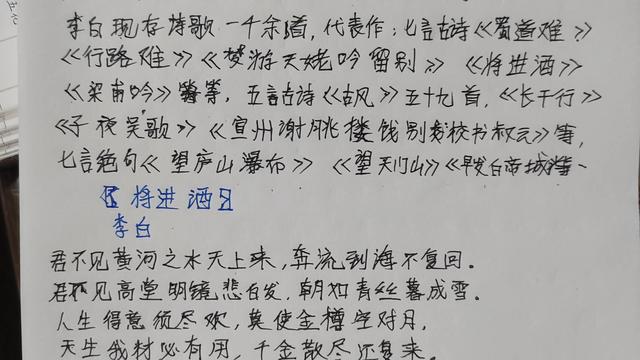 李白现存诗歌一千余首，代表作：七言古诗《蜀道难》
《行路难》《梦游天姥吟留别》，《将进酒》
《梁甫吟》等等，五言古诗《古风》五十九首，《长干行》
《子夜吴歌》《宣州谢朓楼饯别校书叔云》等，
七言绝句《望庐山瀑布》《望天门山》《早发白帝城》等
《将进酒》
李白
君不见黄河之水天上来，奔流到海不复回。
君不见高堂明镜悲白发，朝如青丝暮成雪。
人生得意须尽欢，莫使金樽空对月，
天生我材必有用，千金散尽还复来。